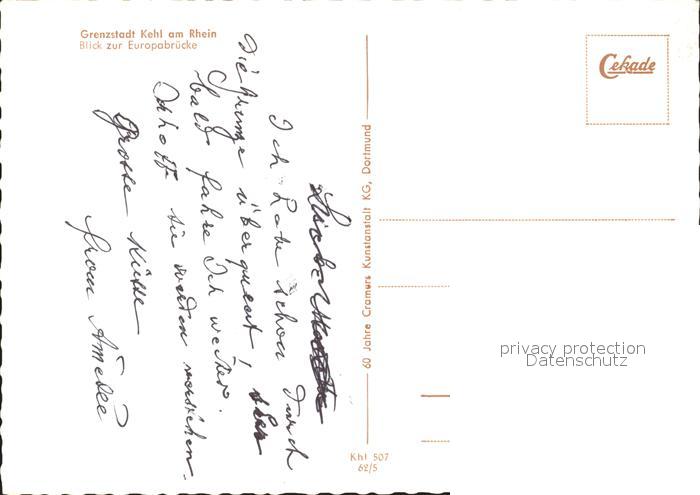 Grenzstadt Kehl am Rhein
Blick zur Europabrücke
Cekade
Ich habe schon durch
die Grenze überquert!
bald fahre Ich weiter.
Ich hoff sie werden verstehen.
Grosse Küsse
from Amelie
60 Jahre Cramers Kunstanstalt KG, Dortmund
Khl 507
62/5
privacy protection
Datenschutz